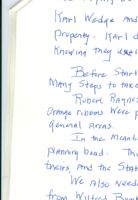 Karl Wedge and
property. Karl d
Knowing they use
Before Start
Many Steps to take
Robert Rayne
Orange ribbons were p
general areas.
In the mean
planning board. Th
theirs, and the State
We Also need
from Wilfred